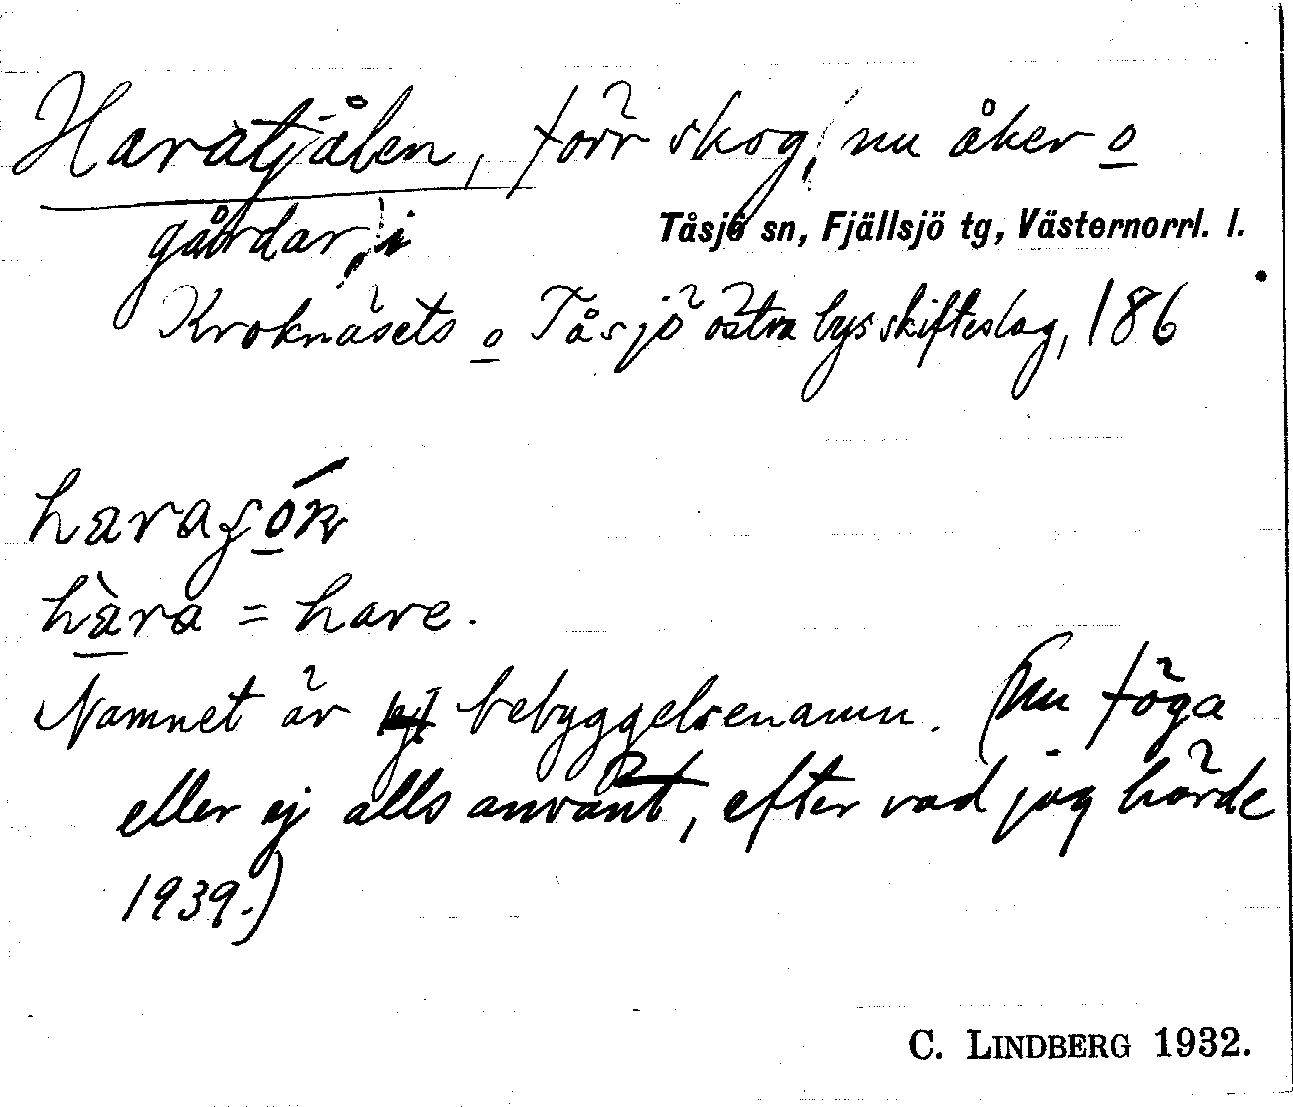 Haratjålen, förr skog, nu åker o
gårdar, i
Tåsjö sn, Fjällsjö tg, Västernorrl. l.
Kroknäsets o Tåsjö östra bys skifteslag, 186
hara = hare.
Namnet är bebyggelsenamn. (Nu föga
eller ej alls använt, efter vad jag hörde
1939.)
C. LINDBERG 1932.